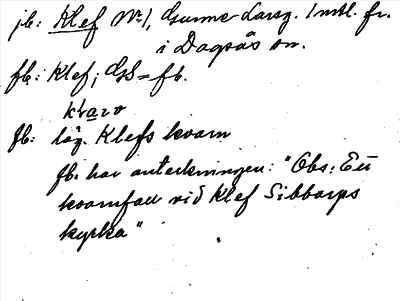 jb: Klef Nr 1, Gunne Larsg. Instl. fr.
i Dagsås sn.
fb: Klef; GS = fb.
kvarn
fb: läg. Klefs kvarn
fb. har anteckningen: "Obs: Ett
kvarnfall vid Klef Sibbarps
kyrka"